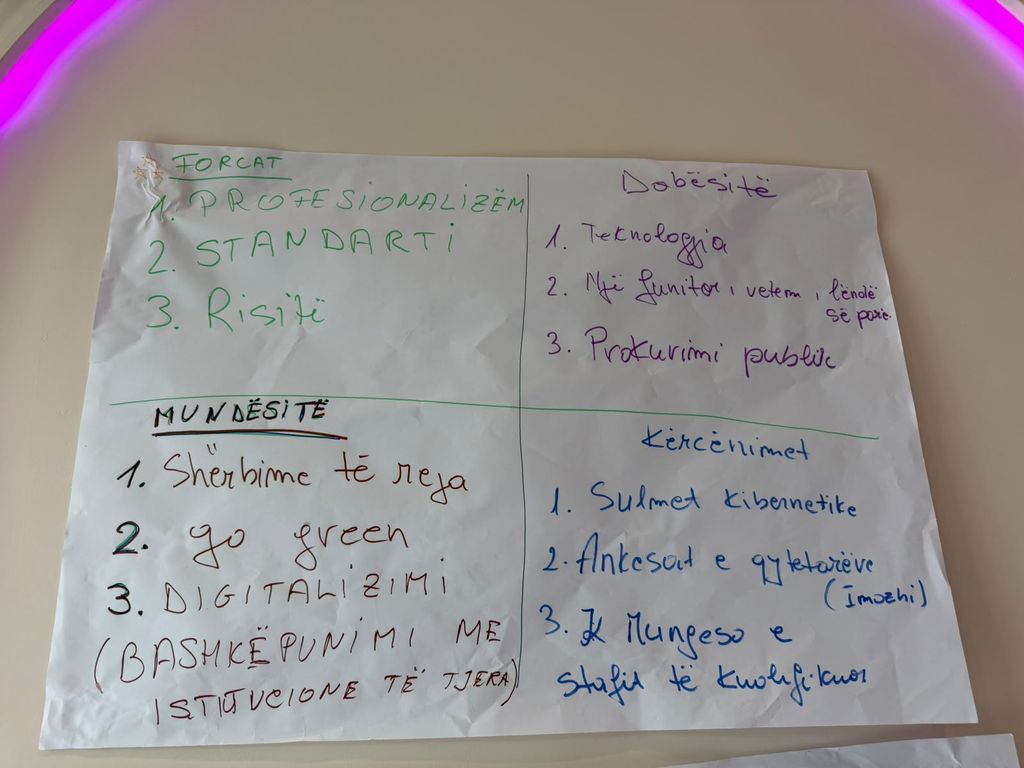 FORCAT
1. PROFESIONALIZËM
2. STANDARTI
3. Risitë
Dobësitë
1. Teknologjia
2. Një funitor, vetem, lëndë
së pare
3. Prokurimi publik
MUNDËSITË
1. Shërbime të reja
2. go green
3. DIGITALIZIMI
(BASHKËPUNIMI ME
ISTITUCIONE TË TJERA)
Kërcënimet
1. Sulmet kibernetike
2. Ankesat e qytetarëve
(Imazhi)
3. Mungesa e
stafit të kualifikuar